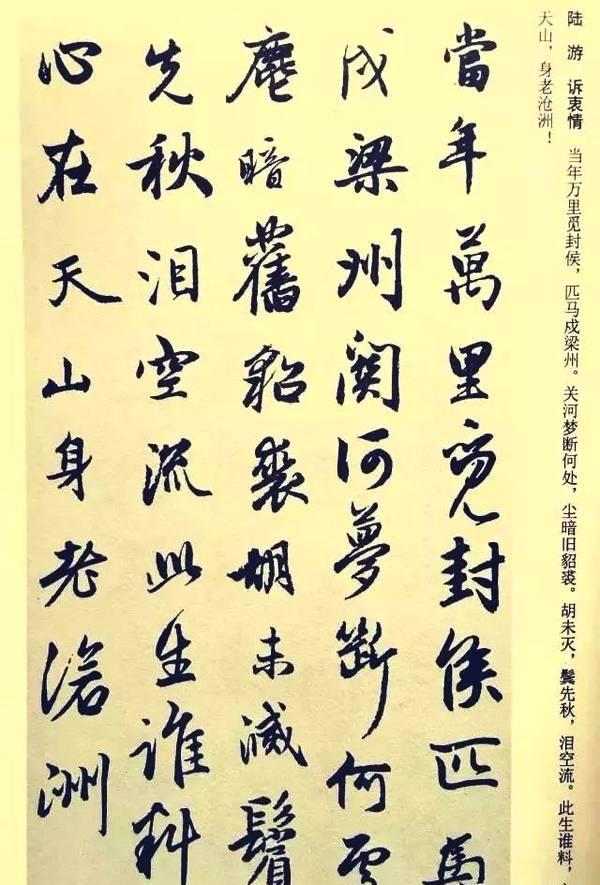 陆 游 诉衷情 当年万里觅封侯，匹马戍梁州。关河梦断何处，尘暗旧貂裘。胡未灭，鬓先秋，泪空流。此生谁料，
天山，身老沧洲！
當年萬里覓封侯匹馬
戍梁州關河夢斷何處
塵暗舊貂裘胡未滅鬢
先秋泪空流此生谁料
心在天山身老滄洲